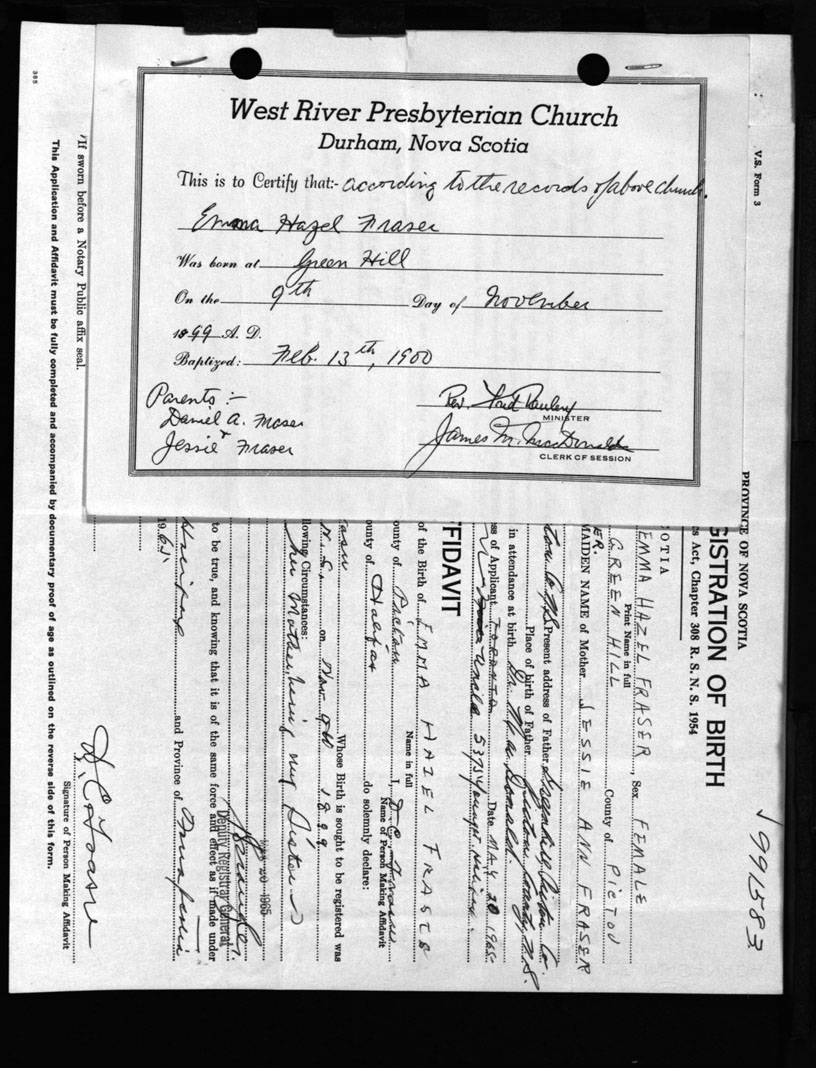 West River Presbyterian Church
Durham, Nova Scotia
This is to Certify that:- according to the records of above church.
Emma Hazel Fraser
Was born at Green Hill
On the 9th Day of November
1899 A. D.
Baptized: Feb. 13th, 1900
Parents :-
Daniel A. Fraser
+
Jessie Fraser
Rev.
MINISTER
James M. MacDonald
CLERK OF SESSION
V.S. Form 3
PROVINCE OF NOVA SCOTIA
GISTRATION OF BIRTH
s Act, Chapter 308 R. S. N. S. 1954
√ 991583
OTIA
EMMA HAZEL FRASER, Sex FEMALE
Print Name in full
GREEN HILL County of PICTOU
ER.
MAIDEN NAME of Mother JESSIE ANN FRASER
Present address of Father Greenhill Pictou Co.
Place of birth of Father Pictou County N.S.
in attendance at birth Dr. McDonald.
ss of Applicant TORONTO Date MAY 20 1965
5375 Younge
FFIDAVIT
of the Birth of EMMA HAZEL FRASER
Name in full
ounty of Pictou I, D.C. Fraser
Name of Person Making Affidavit
ounty of Halifax do solemnly declare:
Whose Birth is sought to be registered was
N.S. on Nov 9th 1899
llowing Circumstances:
her Mother being my Sister
to be true, and knowing that it is of the same force and effect as if made under
20 1965
Deputy Registrar General
Halifax and Province of Nova Scotia
1965.
D. C. Fraser
Signature of Person Making Affidavit
*If sworn before a Notary Public affix seal.
This Application and Affidavit must be fully completed and accompanied by documentary proof of age as outlined on the reverse side of this form.